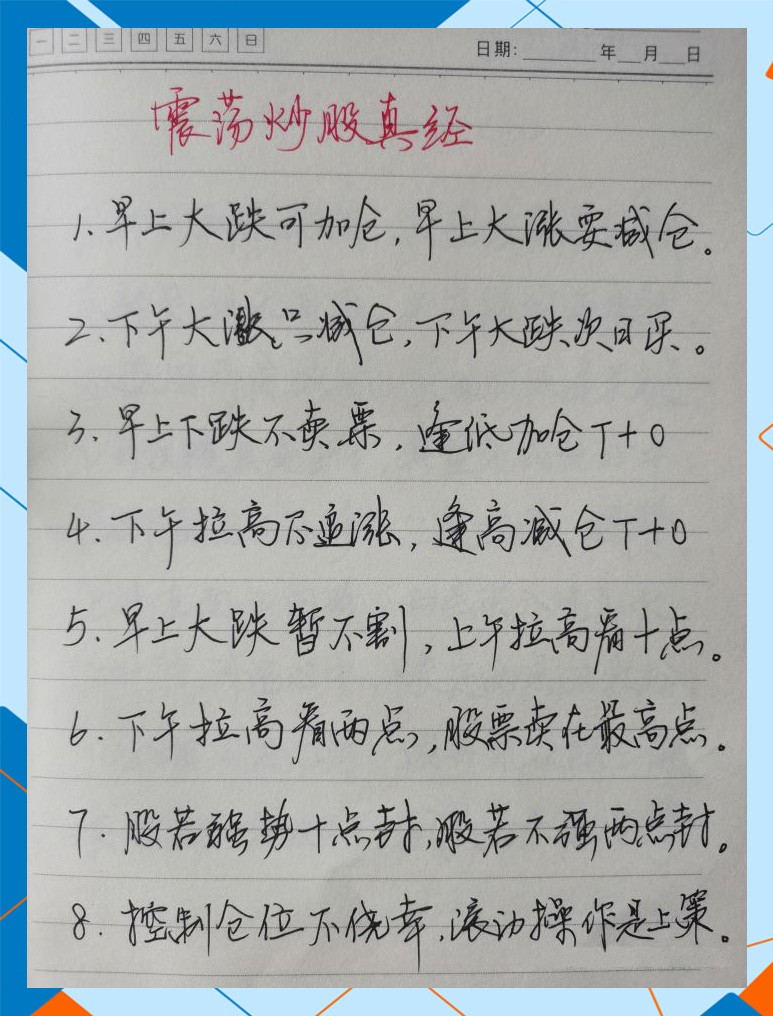 一 二 三 四 五 六 日
日期: 年 月 日
震荡炒股真经
1、早上大跌可加仓,早上大涨要减仓。
2、下午大涨只减仓,下午大跌次日买。
3、早上下跌不卖票,逢低加仓T+0
4、下午拉高不追涨,逢高减仓T+0
5、早上大跌暂不割,上午拉高看十点。
6、下午拉高看两点,股票卖在最高点。
7、股若强势十点封,股若不强两点封。
8、控制仓位不侥幸,滚动操作是上策。